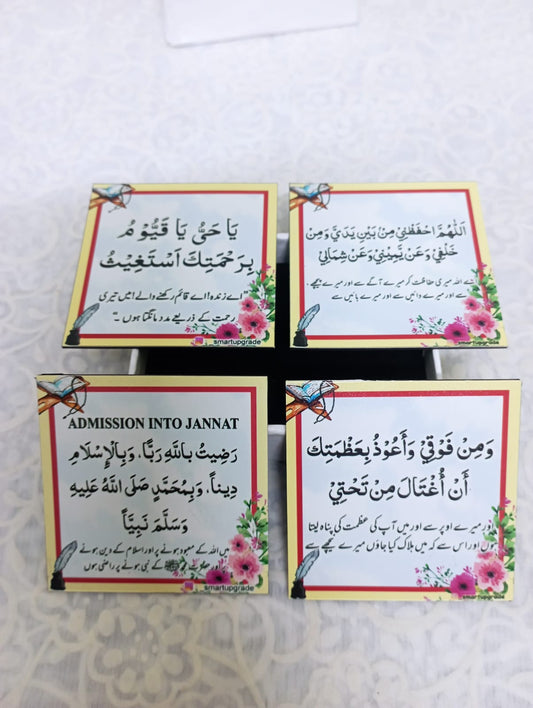 يَا حَيُّ يَا قَيُّوْمُ
بِرَحْمَتِكَ اَسْتَغِيْثُ
اے زندہ! اے قائم رکھنے والے! میں تیری
رحمت کے ذریعے مدد مانگتا ہوں ۔"
smartupgrade
اَللّٰهُمَّ احْفَظْنِيْ مِنْ بَيْنِ يَدَيَّ وَمِنْ
خَلْفِيْ وَعَنْ يَّمِيْنِيْ وَعَنْ شِمَالِيْ
اے اللہ میری حفاظت کر میرے آگے سے اور میرے پیچھے
سے اور میرے دائیں سے اور میرے بائیں سے
smartupgrade
ADMISSION INTO JANNAT
رَضِيْتُ بِاللَّهِ رَبًّا، وَبِالْإِسْلَامِ
دِيناً، وَبِمُحَمَّدٍ صَلَى اللَّهُ عَلَيهِ
وَسَلَّمَ نَبِيًّا
میں اللہ کے معبود ہونے پر اور اسلام کے دین ہونے
ﷺ کے نبی ہونے پر راضی ہوں
smartupgrade
وَمِنْ فَوْقِيْ وَأَعُوْذُ بِعَظَمَتِكَ
أَنْ أُغْتَالَ مِنْ تَحْتِيْ
اور میرے اوپر سے اور میں آپ کی عظمت کی پناہ لیتا
ہوں اور اس سے کہ میں ہلاک کیا جاؤں میرے نیچے سے
smartupgrade